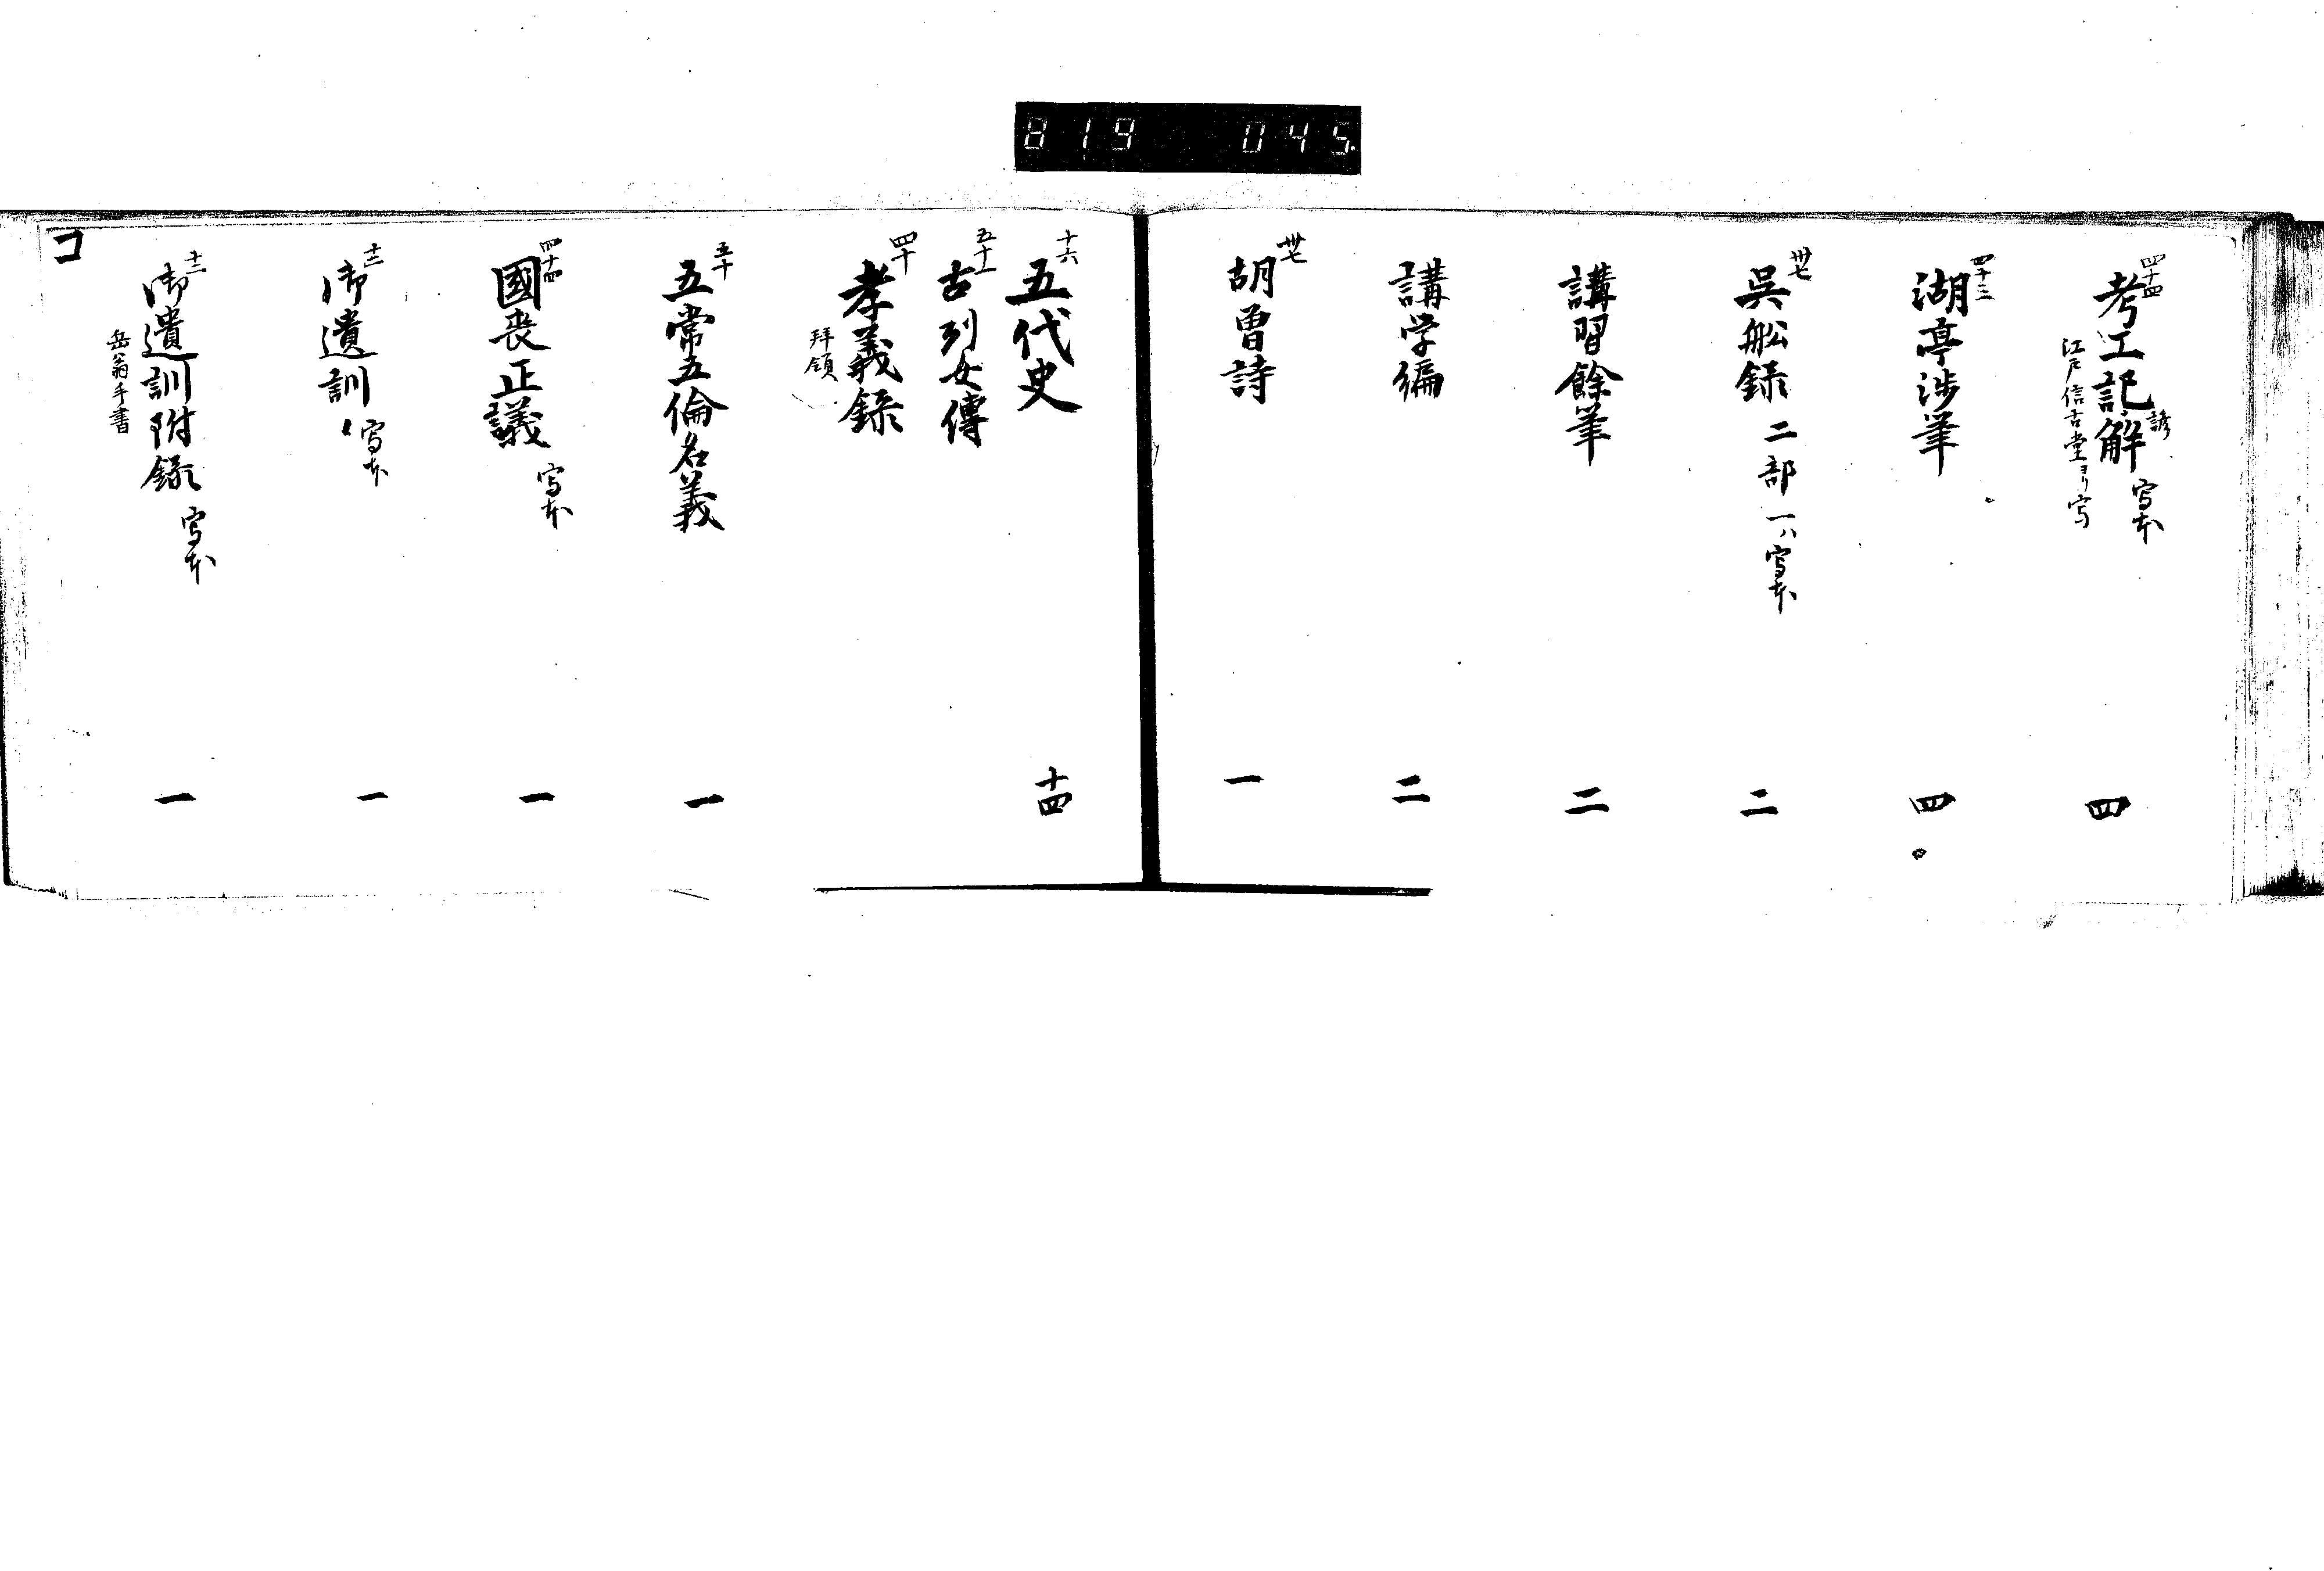 819 045
四十四 考工記諺解 写本 四
江戸信古堂ヨリ写
四十三 湖亭渉筆 四
卅七 呉舩録 二部 一ハ写本 二
講習餘筆 二
講学編 二
卅七 胡曽詩 一
十六 五代史 十四
五十一 古列女傳
四十 孝義録
拜領
五十 五常五倫名義 一
四十四 國喪正議 写本 一
十二 御遺訓 写本 一
十二 御遺訓附録 写本 一
岳翁手書
コ